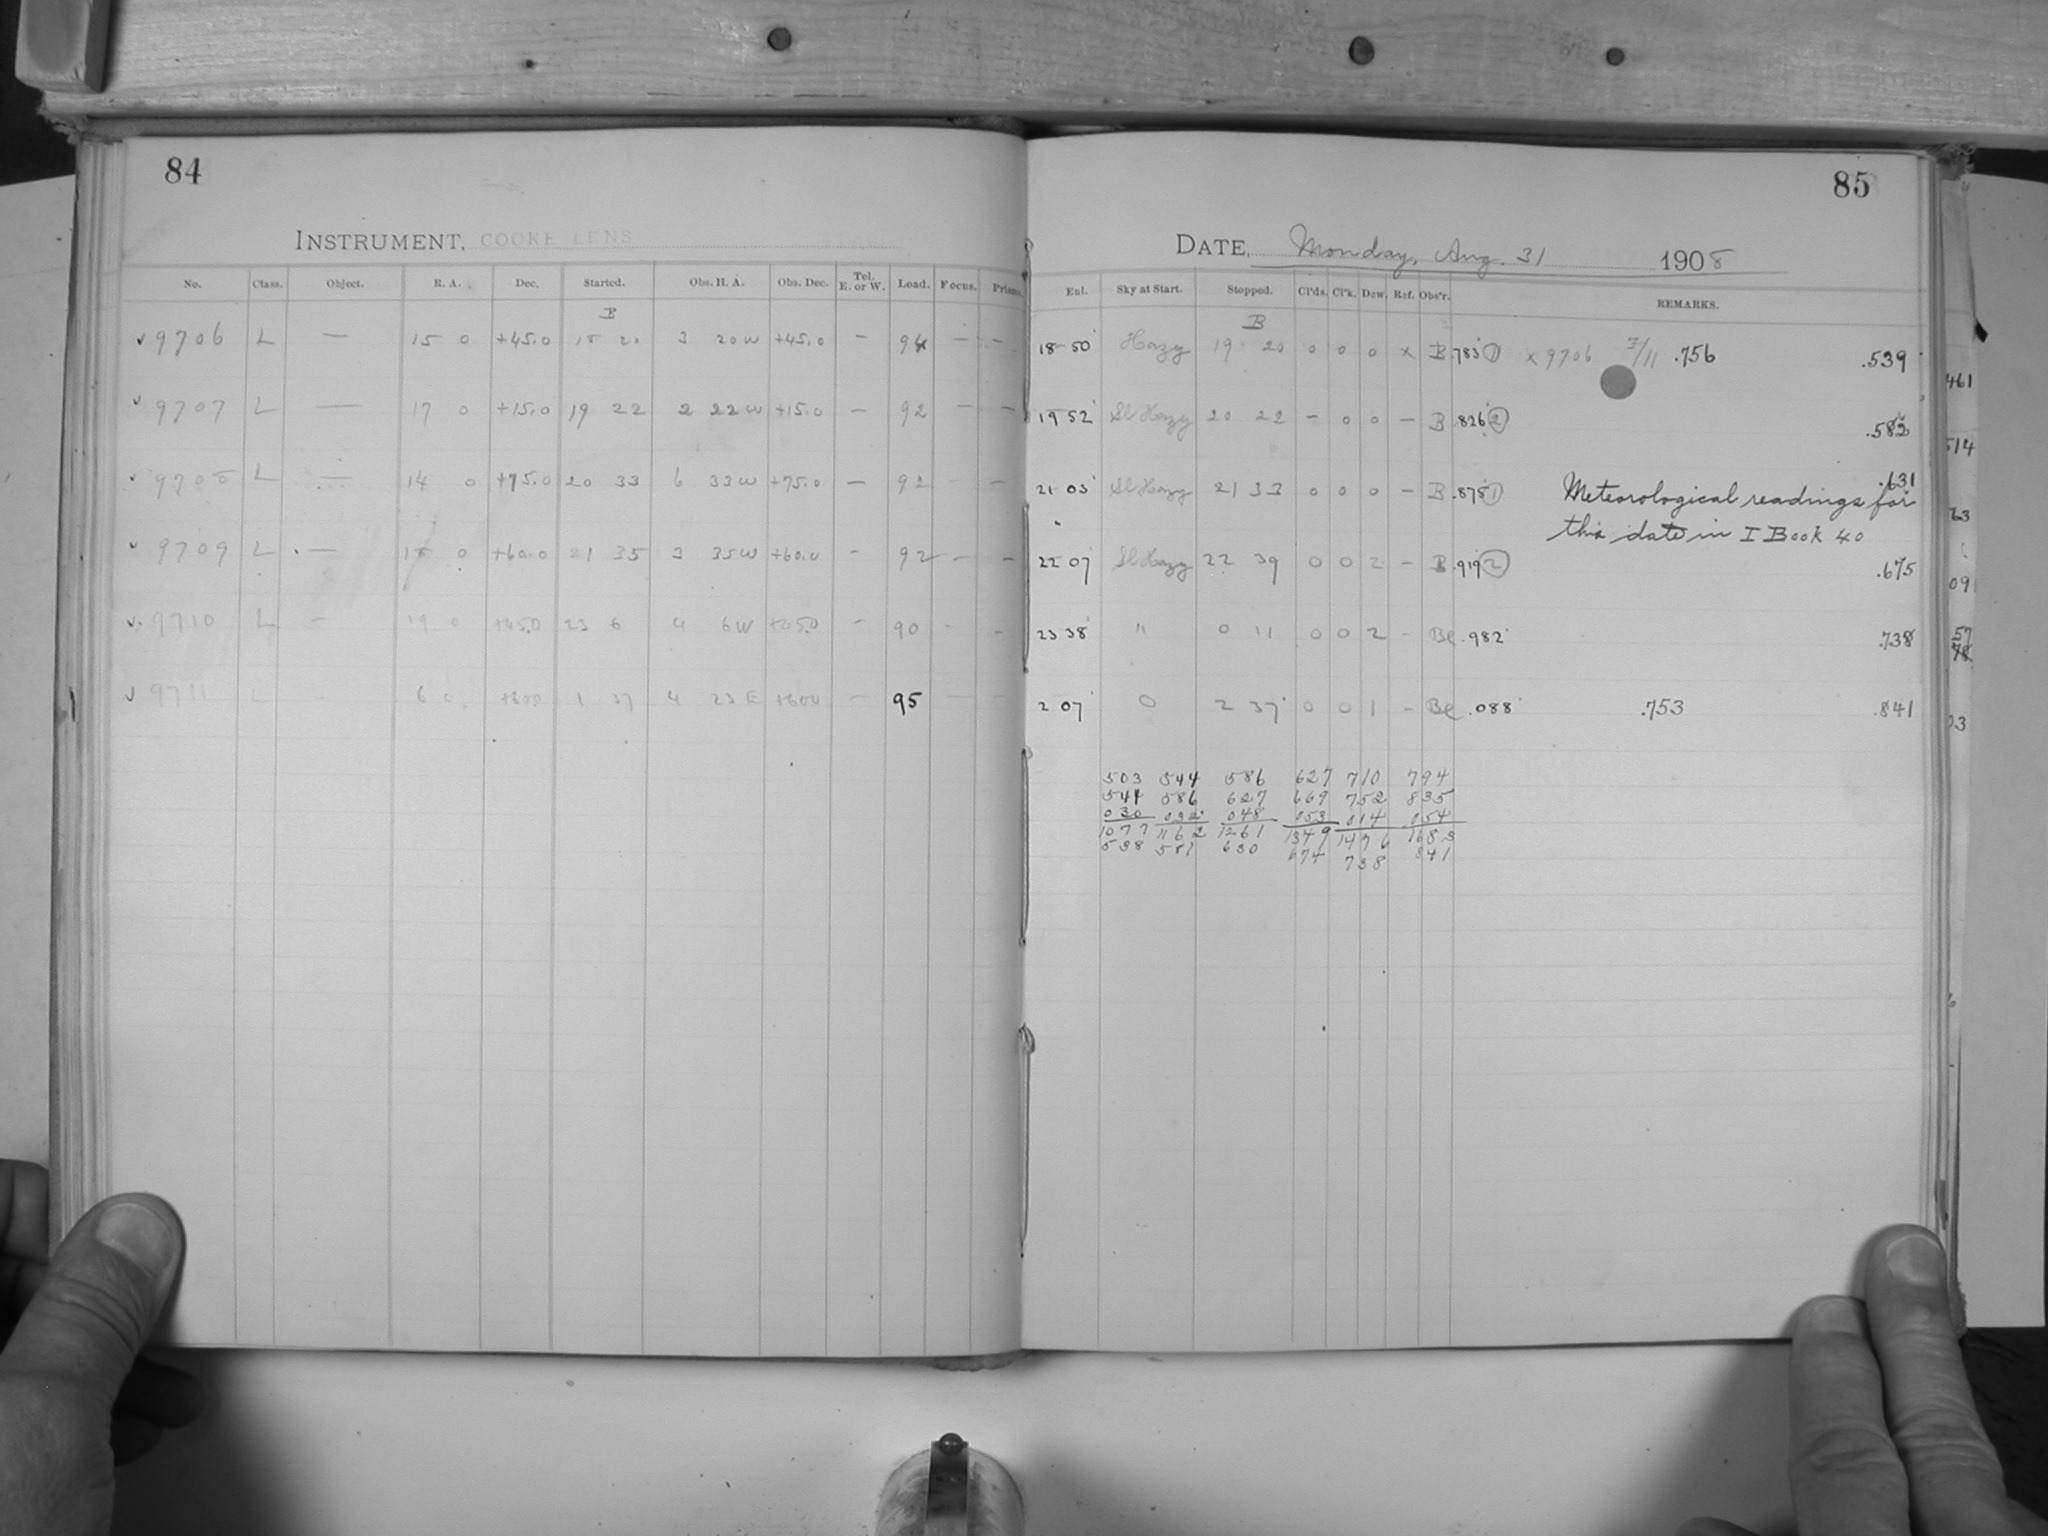 84
INSTRUMENT, COOKE LENS
No. Class. Object. R. A. Dec. Started. Obs. H. A. Obs. Dec. Tel. E. or W. Load. Focus. Prisms.
B
v 9706 L — 15 0 +45.0 18 20 3 20W +45.0 — 94 — —
v 9707 L — 17 0 +15.0 19 22 2 22W +15.0 — 92 — —
v 9708 L — 14 0 +75.0 20 33 6 33W +75.0 — 92 — —
v 9709 L — 18 0 +60.0 21 35 3 35W +60.0 — 92 — —
v 9710 L — 19 0 +45.0 23 6 4 6W +45.0 — 90 — —
v 9711 L — 6 0 +60.0 1 37 4 23E +60.0 — 95 — —
85
DATE, Monday, Aug. 31 1908
Ent. Sky at Start. Stopped. Cl'ds. Cl'k. Dew. Ref. Obs'r. REMARKS.
B
18 50 Hazy 19 20 0 0 0 x B .783 1 x 9706 7/11 .756 .539
19 52 Sl Hazy 20 22 — 0 0 — B .826 2 .582
21 03 Sl Hazy 21 33 0 0 0 — B .875 1 .631
Meteorological readings for
this date in I Book 40
22 07 Sl Hazy 22 39 0 0 2 — B .919 2 .675
23 38 " 0 11 0 0 2 — Be .982 .738
2 07 0 2 37 0 0 1 — Be .088 .753 .841
503 544 586 627 710 794
544 586 627 669 752 835
030 032 048 053 014 054
1077 1162 1261 1349 1476 1683
538 581 630 674 738 841
461
514
63
09
57
78
03